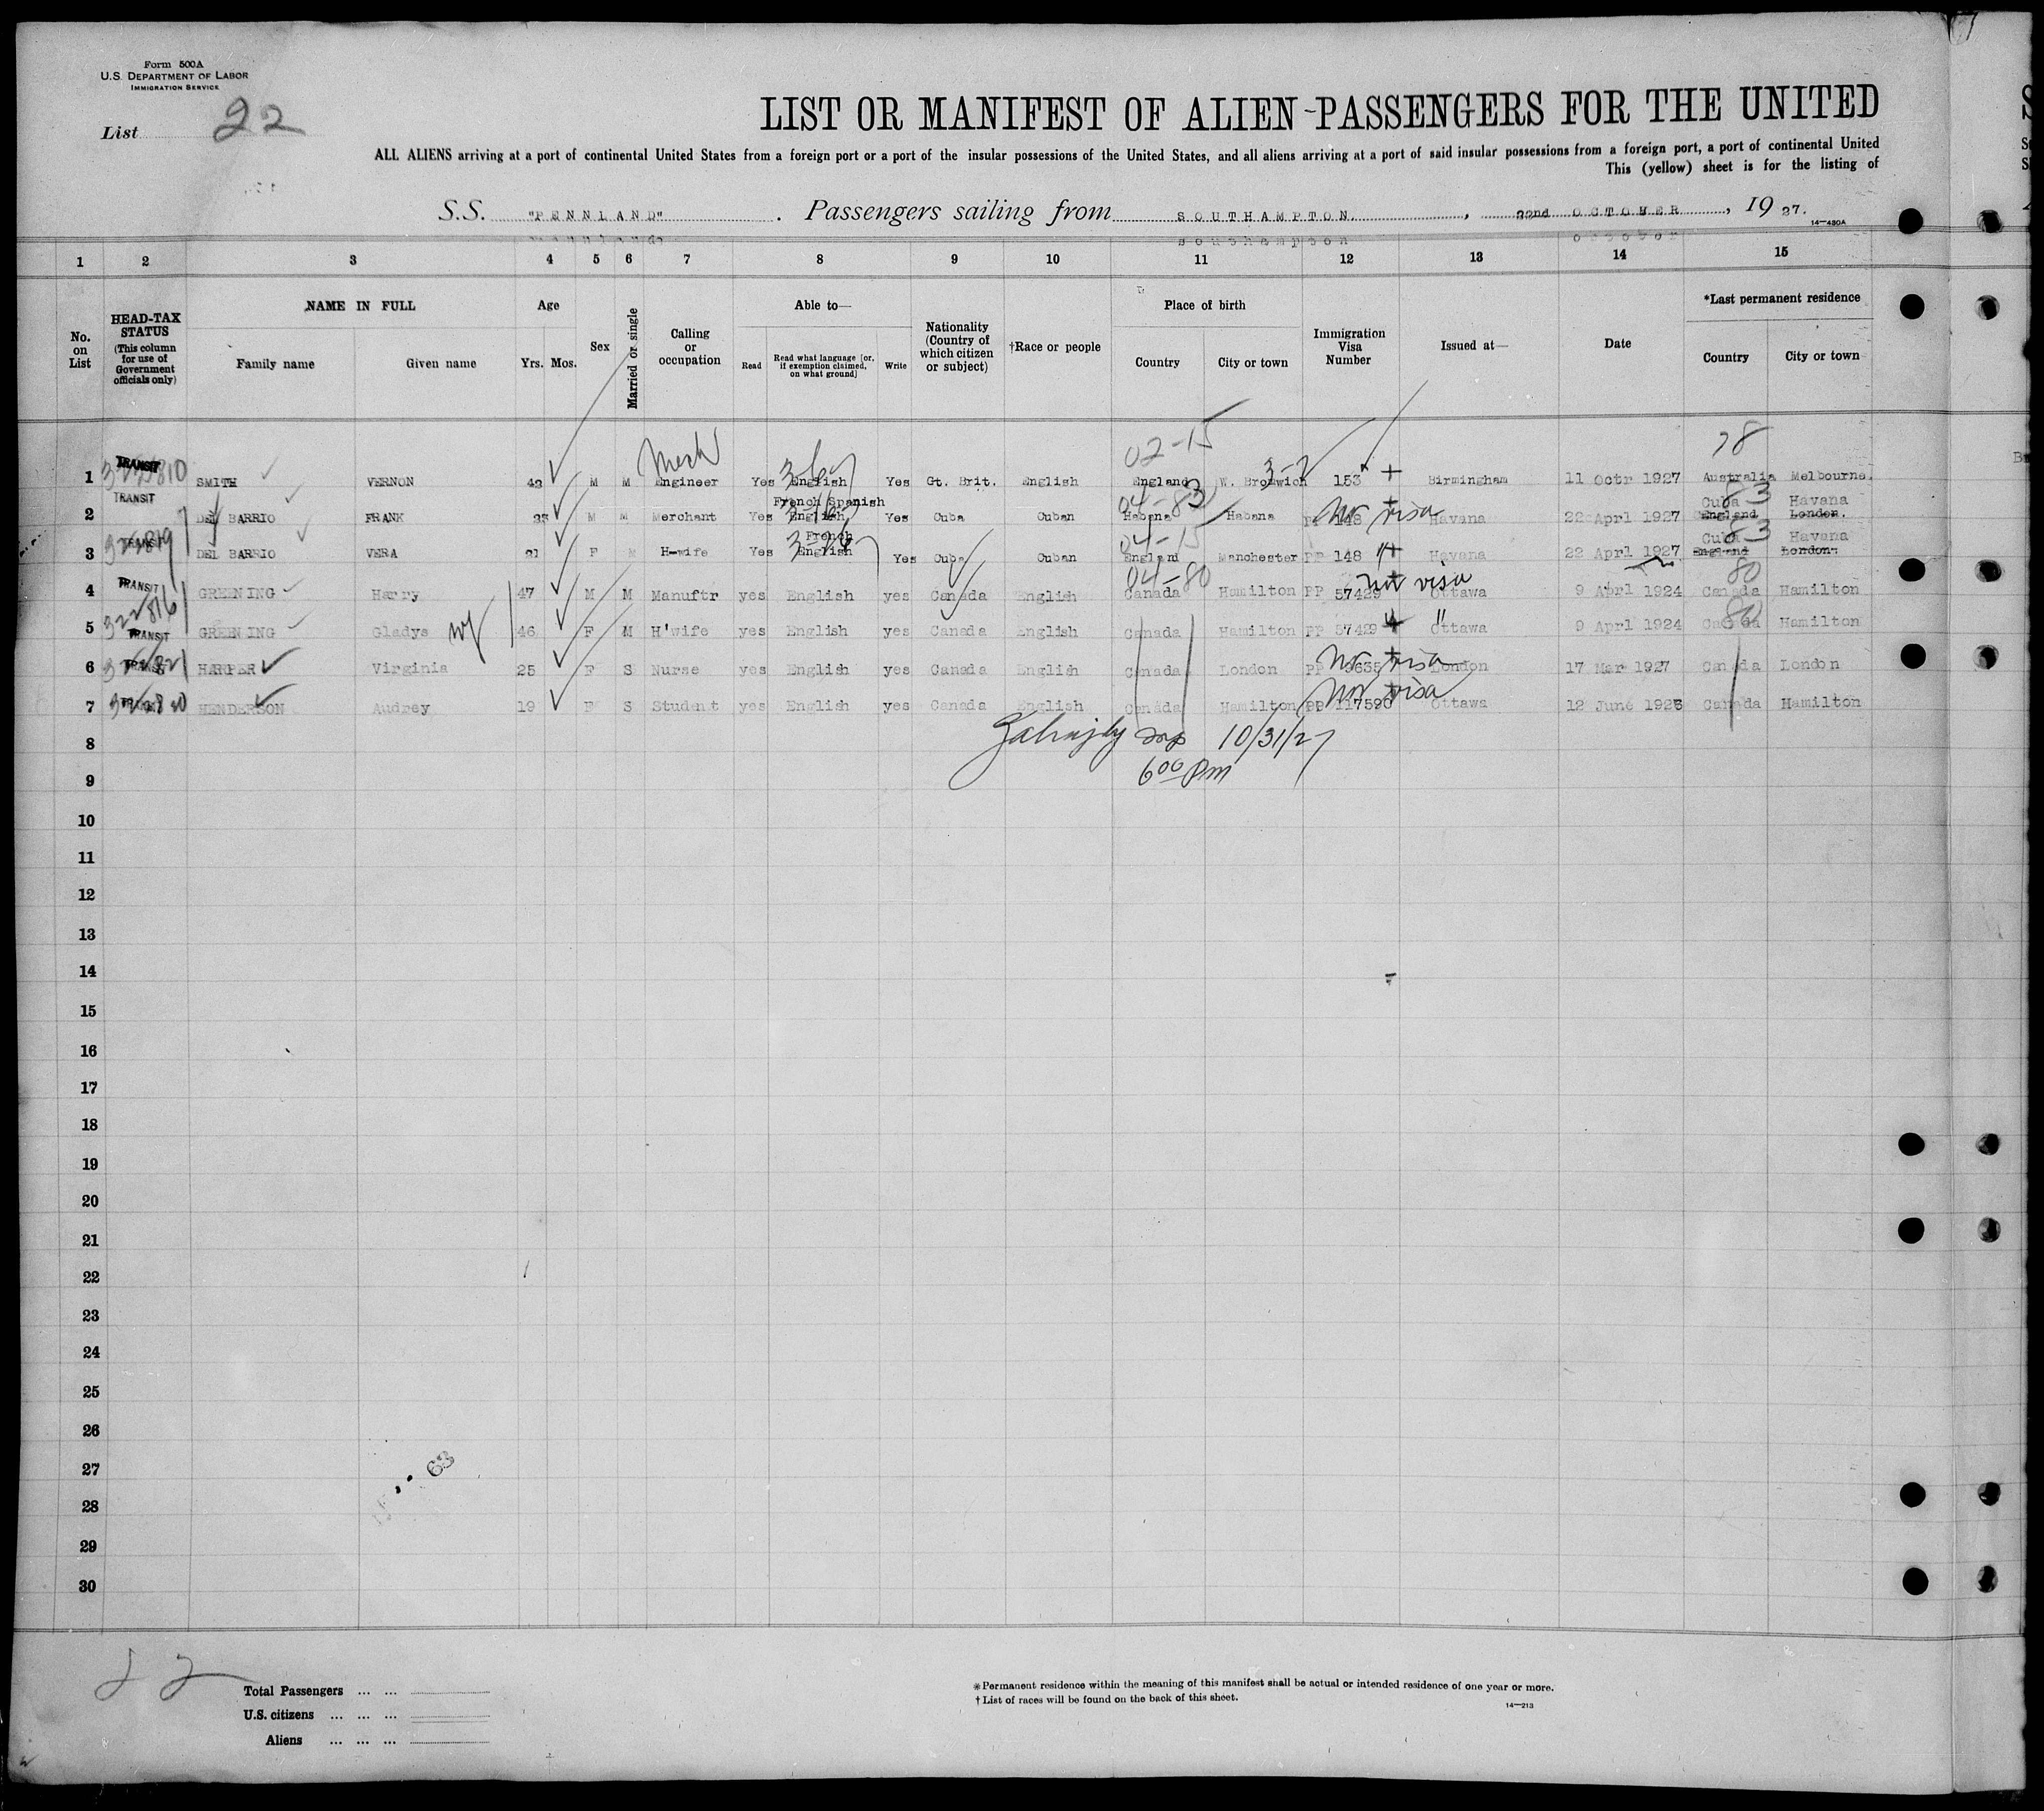 Form 500A
U.S. DEPARTMENT OF LABOR
IMMIGRATION SERVICE
List 22
LIST OR MANIFEST OF ALIEN PASSENGERS FOR THE UNITED
ALL ALIENS arriving at a port of continental United States from a foreign port or a port of the insular possessions of the United States, and all aliens arriving at a port of said insular possessions from a foreign port, a port of continental United
This (yellow) sheet is for the listing of
S.S. "PENNLAND" . Passengers sailing from SOUTHAMPTON. , 22nd OCTOBER , 19 27.
14-430A
1 2 3 4 5 6 7 8 9 10 11 12 13 14 15
No. on List
HEAD-TAX STATUS (This column for use of Government officials only)
NAME IN FULL
Family name Given name
Age
Yrs. Mos.
Sex
Married or single
Calling or occupation
Able to—
Read Read what language [or, if exemption claimed, on what ground] Write
Nationality (Country of which citizen or subject)
†Race or people
Place of birth
Country City or town
Immigration Visa Number
Issued at—
Date
*Last permanent residence
Country City or town
Mech 02-15 78
1 TRANSIT SMITH VERNON M M Engineer Yes English Yes Gt. Brit. English England W. Bromwich 153 Birmingham 11 Octr 1927 Australia Melbourne.
French Spanish Cuba Havana
2 TRANSIT DEL BARRIO FRANK M M Merchant Yes English Yes Cuba Cuban Habana Habana 148 no visa Havana 22 Aprl 1927 England London.
French Cuba Havana
3 TRANSIT DEL BARRIO VERA F M H-wife Yes English Yes Cuba Cuban England Manchester PP 148 " Havana 22 Aprl 1927 England London.
04-80 80
4 TRANSIT GREENING Harry 47 M M Manuftr yes English yes Canada English Canada Hamilton PP 57429 no visa Ottawa 9 Aprl 1924 Canada Hamilton
5 TRANSIT GREENING Gladys wf 46 F M H'wife yes English yes Canada English Canada Hamilton PP 57429 " Ottawa 9 Aprl 1924 Canada Hamilton
6 TRANSIT HARPER Virginia 25 F S Nurse yes English yes Canada English Canada London PP no visa London 17 Mar 1927 Canada London
7 TRANSIT HENDERSON Audrey 19 F S Student yes English yes Canada English Canada Hamilton PP 117590 no visa Ottawa 12 June Canada Hamilton
8 10/31/27
9 6 00 Pm
10
11
12
13
14
15
16
17
18
19
20
21
22
23
24
25
26
27 63
28
29
30
22
Total Passengers ... ...
U.S. citizens ... ... ...
Aliens ... ... ...
*Permanent residence within the meaning of this manifest shall be actual or intended residence of one year or more.
†List of races will be found on the back of this sheet.
14-213